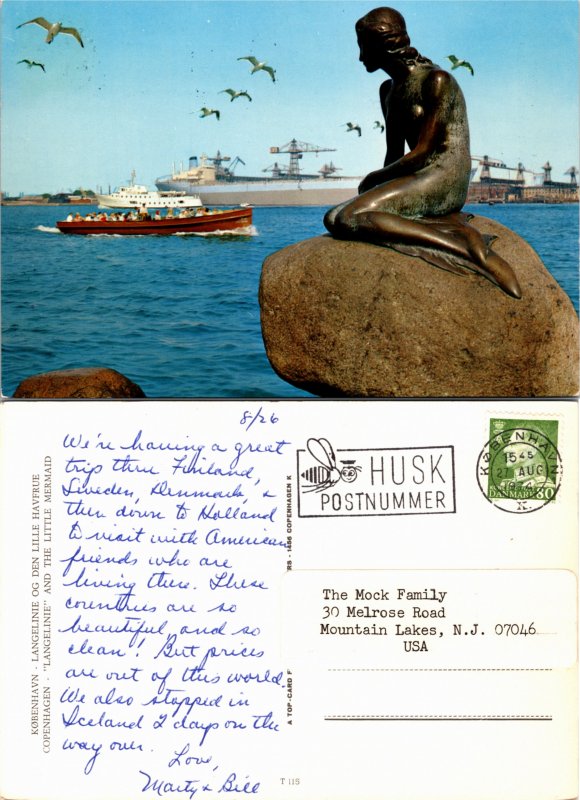 8/26
We're having a great
trip thru Finland,
Sweden, Denmark, &
then down to Holland
to visit with American
friends who are
living there. These
countries are so
beautiful, and so
clean! But prices
are out of this world.
We also stopped in
Iceland 2 days on the
way over.
Love,
Marty & Bill
KØBENHAVN - LANGELINIE OG DEN LILLE HAVFRUE
COPENHAGEN - "LANGELINIE" AND THE LITTLE MERMAID
A TOP-CARD F
RS - 1456 COPENHAGEN K
HUSK
POSTNUMMER
KØBENHAVN
1545
27 AUG
K.
DANMARK 80
The Mock Family
30 Melrose Road
Mountain Lakes, N.J. 07046
USA
T 115